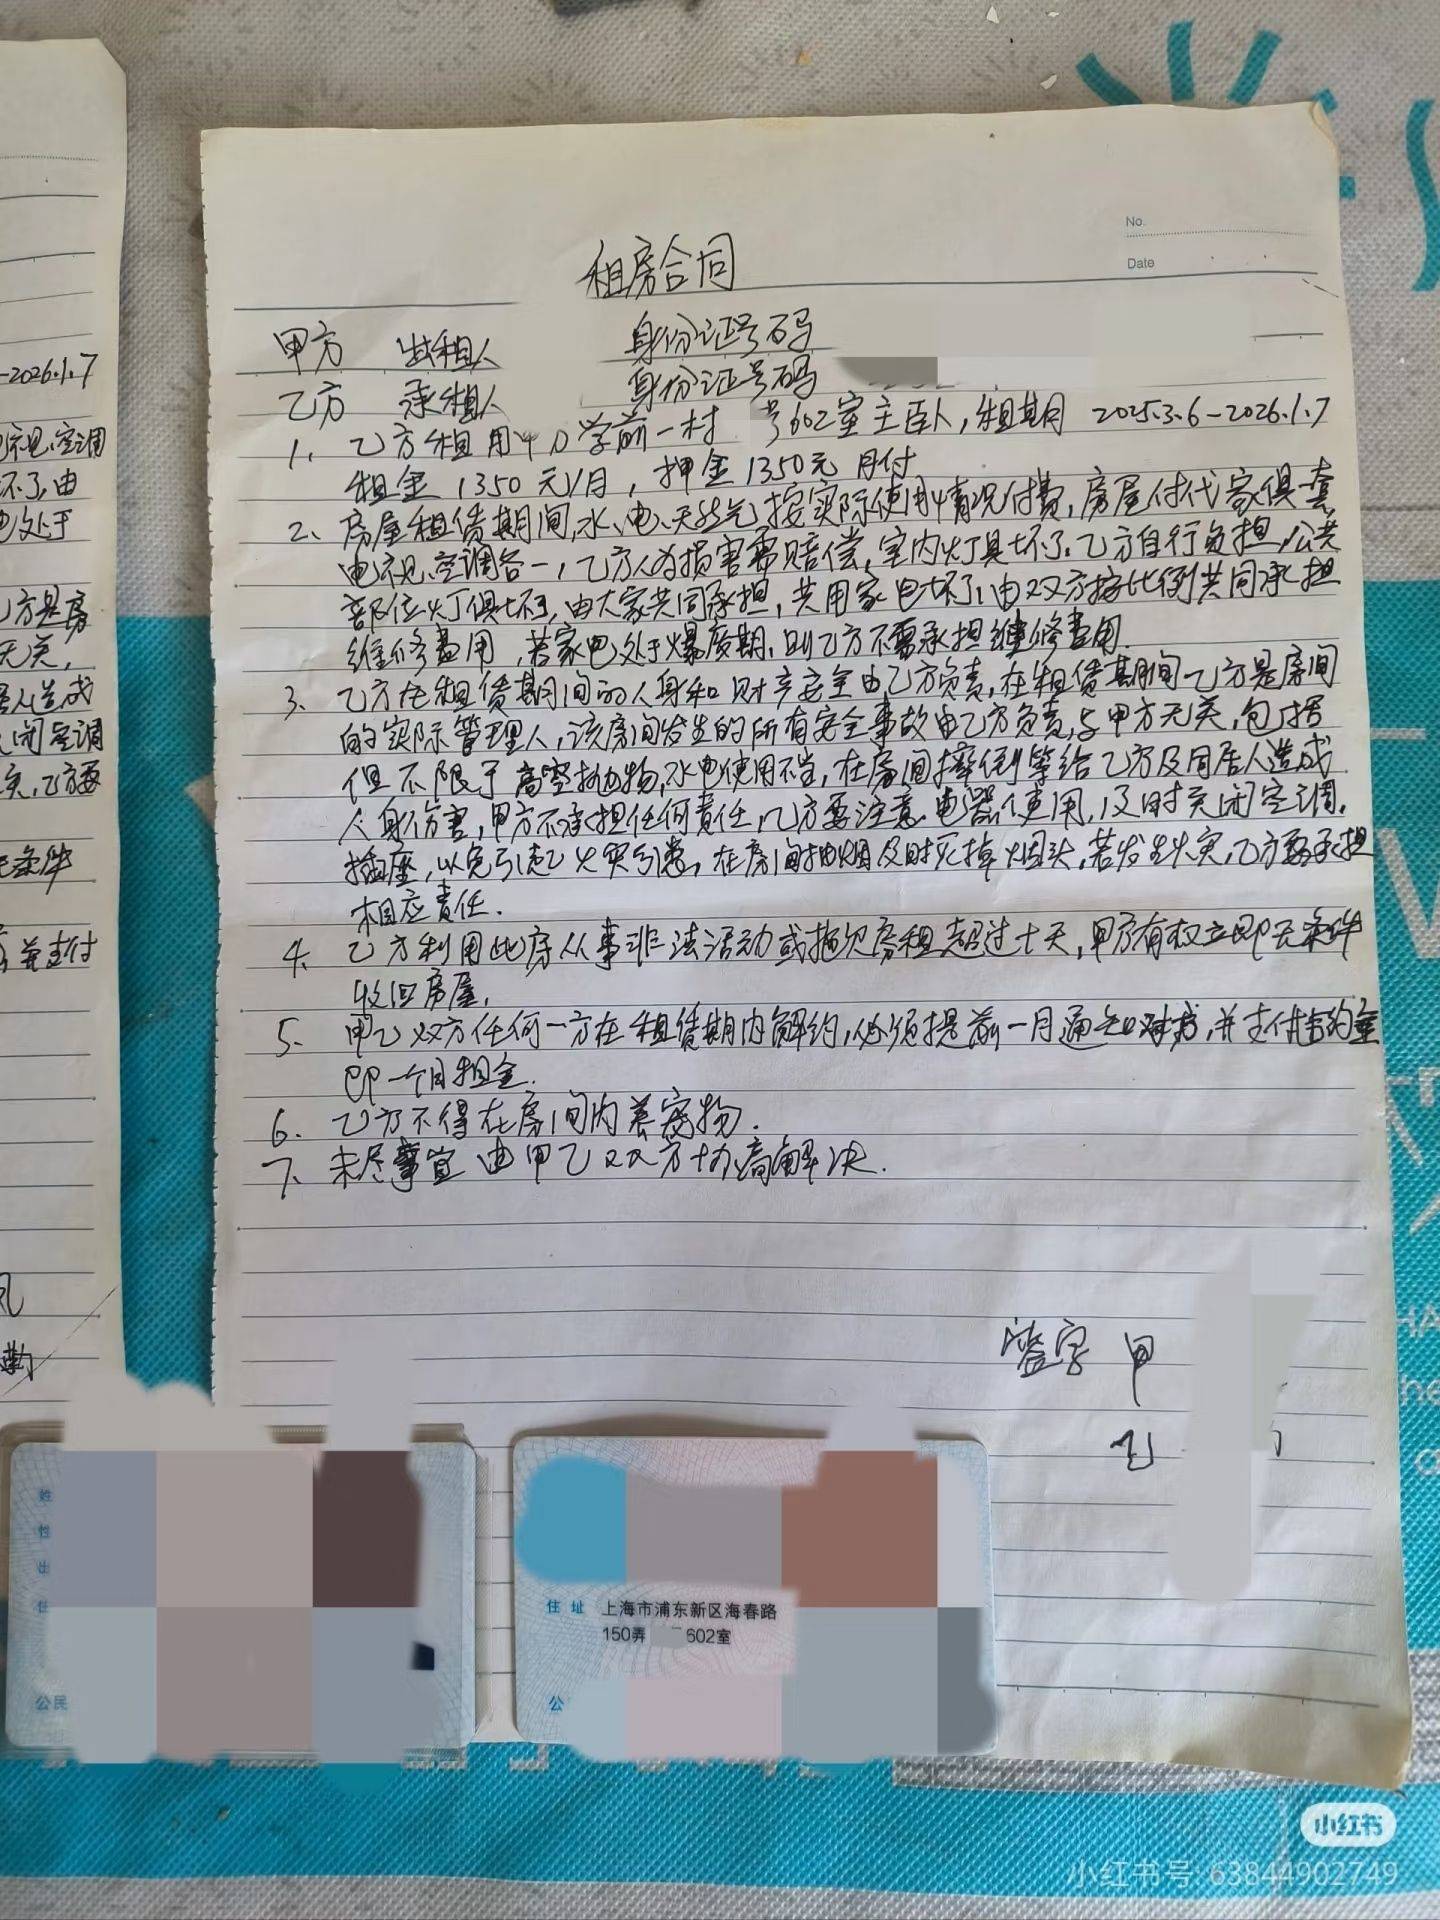 No.
Date
租房合同
甲方 出租人 身份证号码
乙方 承租人 身份证号码
1、乙方租用 学前一村 号602室主臣人,租期 2025.3.6-2026.1.7
租金 1350元/月,押金1350元 月付
2、房屋租赁期间,水、电、天然气按实际使用情况付费,房屋付代家俱一套,
电视、空调各一,乙方人为损害需赔偿,室内灯具坏了、乙方自行负担,公共
部位灯俱坏,由大家共同承担,共用家电坏了,由双方按比例共同承担
维修费用,若家电处于爆质期,则乙方不需承担维修费用.
3、乙方在租赁期间的人身和财产安全由乙方负责,在租赁期间乙方是房间
的实际管理人,该房间发生的所有安全事故由乙方负责,与甲方无关,包括
但不限于高空抛物,水电使用不当,在房间摔倒等给乙方及同居人造成
人身伤害,甲方不承担任何责任,乙方要注意电器使用,及时关闭空调,
插座,以免引起火灾引患,在房间抽烟及时灭掉烟头,若发生火灾,乙方要承担
相应责任.
4、乙方利用此房从事非法活动或拖欠房租超过十天,甲方有权立即无条件
收回房屋,
5、甲乙双方任何一方在租赁期内解约,必须提前一月通知对方,并支付违约金
即一个月租金.
6、乙方不得在房间内养宠物.
7、未尽事宜由甲乙双方协商解决.
签字 甲
乙
-2026.1.7
视、空调
坏了,由
电处于
乙方是房
无关,
居人造成
闭空调
灾,乙方要
无条件
并支付
姓
性
出
住
公民
住址 上海市浦东新区海春路
150弄 602室
公
小红书
小红书号: 63844902749